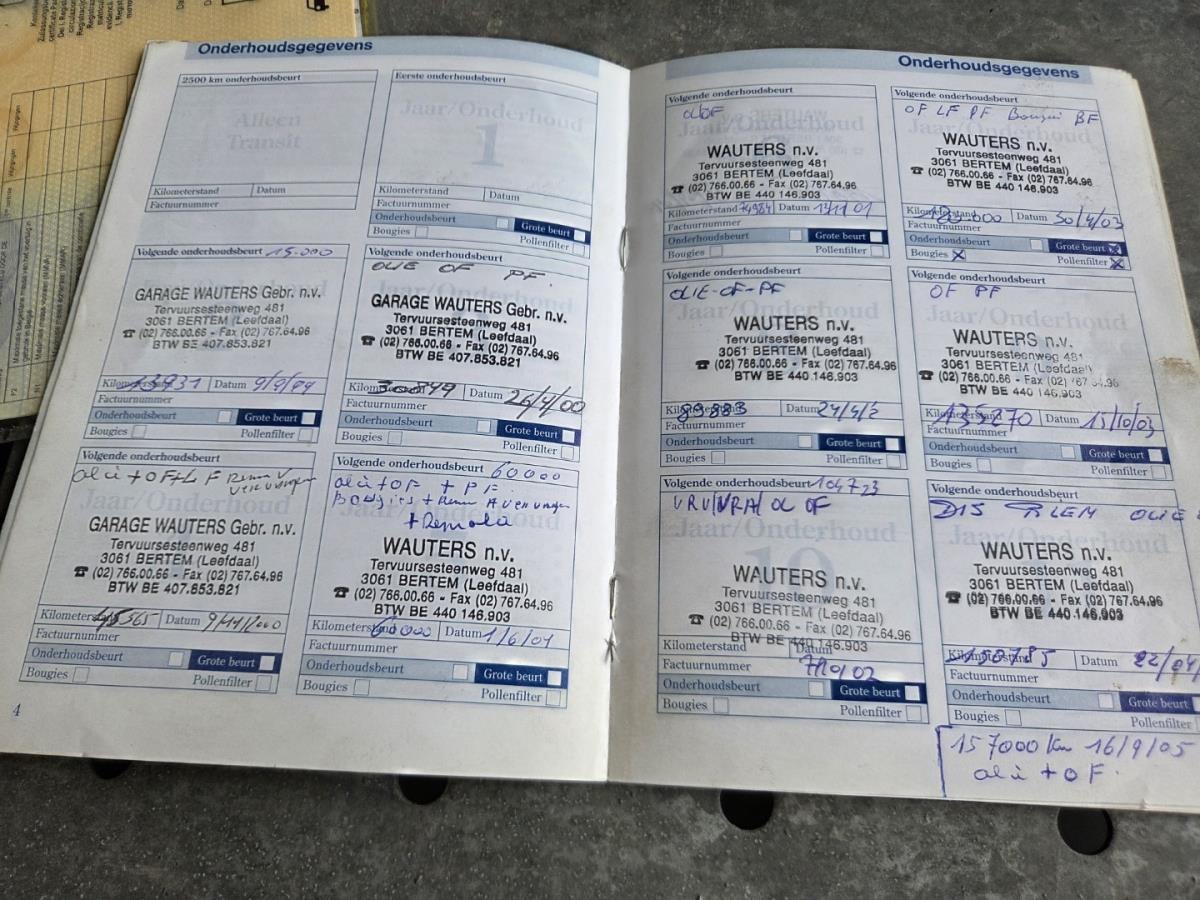 Onderhoudsgegevens
2500 km onderhoudsbeurt
Alleen
Transit
Kilometerstand Datum
Factuurnummer
Eerste onderhoudsbeurt
Jaar/Onderhoud
1
Kilometerstand Datum
Factuurnummer
Onderhoudsbeurt Grote beurt
Bougies Pollenfilter
Volgende onderhoudsbeurt 15.000
GARAGE WAUTERS Gebr. n.v.
Tervuursesteenweg 481
3061 BERTEM (Leefdaal)
☎ (02) 766.00.66 - Fax (02) 767.64.96
BTW BE 407.853.821
Datum 9/9/99
Factuurnummer
Onderhoudsbeurt Grote beurt
Bougies Pollenfilter
Volgende onderhoudsbeurt
OLIE OF PF.
GARAGE WAUTERS Gebr. n.v.
Tervuursesteenweg 481
3061 BERTEM (Leefdaal)
☎ (02) 766.00.66 - Fax (02) 767.64.96
BTW BE 407.853.821
Datum 26/4/00
Factuurnummer
Onderhoudsbeurt Grote beurt
Bougies Pollenfilter
Volgende onderhoudsbeurt
GARAGE WAUTERS Gebr. n.v.
Tervuursesteenweg 481
3061 BERTEM (Leefdaal)
☎ (02) 766.00.66 - Fax (02) 767.64.96
BTW BE 407.853.821
Kilometerstand 45565 Datum 9/11/2000
Factuurnummer
Onderhoudsbeurt Grote beurt
Bougies Pollenfilter
Volgende onderhoudsbeurt 60000
olie + OF + PF.
WAUTERS n.v.
Tervuursesteenweg 481
3061 BERTEM (Leefdaal)
☎ (02) 766.00.66 - Fax (02) 767.64.96
BTW BE 440.146.903
Kilometerstand 60000 Datum 1/6/01
Factuurnummer
Onderhoudsbeurt Grote beurt
Bougies Pollenfilter
4
Onderhoudsgegevens
Volgende onderhoudsbeurt
Jaar/Onderhoud
WAUTERS n.v.
Tervuursesteenweg 481
3061 BERTEM (Leefdaal)
☎ (02) 766.00.66 - Fax (02) 767.64.96
BTW BE 440 146.903
Kilometerstand 74984 Datum 13/11/01
Factuurnummer
Onderhoudsbeurt Grote beurt
Bougies Pollenfilter
Volgende onderhoudsbeurt
OF LF PF Bougie BF
Jaar/Onderhoud
WAUTERS n.v.
Tervuursesteenweg 481
3061 BERTEM (Leefdaal)
☎ (02) 766.00.66 - Fax (02) 767.64.96
BTW BE 440 146.903
Kilometerstand Datum 30/4/03
Factuurnummer
Onderhoudsbeurt Grote beurt
Bougies Pollenfilter
Volgende onderhoudsbeurt
OLIE-OF-PF
WAUTERS n.v.
Tervuursesteenweg 481
3061 BERTEM (Leefdaal)
☎ (02) 766.00.66 - Fax (02) 767.64.96
BTW BE 440 146.903
89883 Datum 24/4/2
Factuurnummer
Onderhoudsbeurt Grote beurt
Bougies Pollenfilter
Volgende onderhoudsbeurt
OF PF
Jaar/Onderhoud
WAUTERS n.v.
Tervuursesteenweg 481
3061 BERTEM (Leefdaal)
☎ (02) 766.00.66 - Fax (02)
BTW BE 440 146.903
Datum 13/10/03
Factuurnummer
Onderhoudsbeurt Grote beurt
Bougies Pollenfilter
Volgende onderhoudsbeurt 104723
VRV/VRA/OL OF
Jaar/Onderhoud
10
WAUTERS n.v.
Tervuursesteenweg 481
3061 BERTEM (Leefdaal)
☎ (02) 766.00.66 - Fax (02) 767.64.96
BTW BE 440 146.903
Kilometerstand Datum
Factuurnummer 7/10/02
Onderhoudsbeurt Grote beurt
Bougies Pollenfilter
Volgende onderhoudsbeurt
OLIE
Jaar/Onderhoud
WAUTERS n.v.
Tervuursesteenweg 481
3061 BERTEM (Leefdaal)
☎ (02) 766.00.66 - Fax (02) 767.64.96
BTW BE 440.146.903
Datum
Factuurnummer
Onderhoudsbeurt Grote beurt
Bougies Pollenfilter
157000 Km 16/9/05
olie + OF.